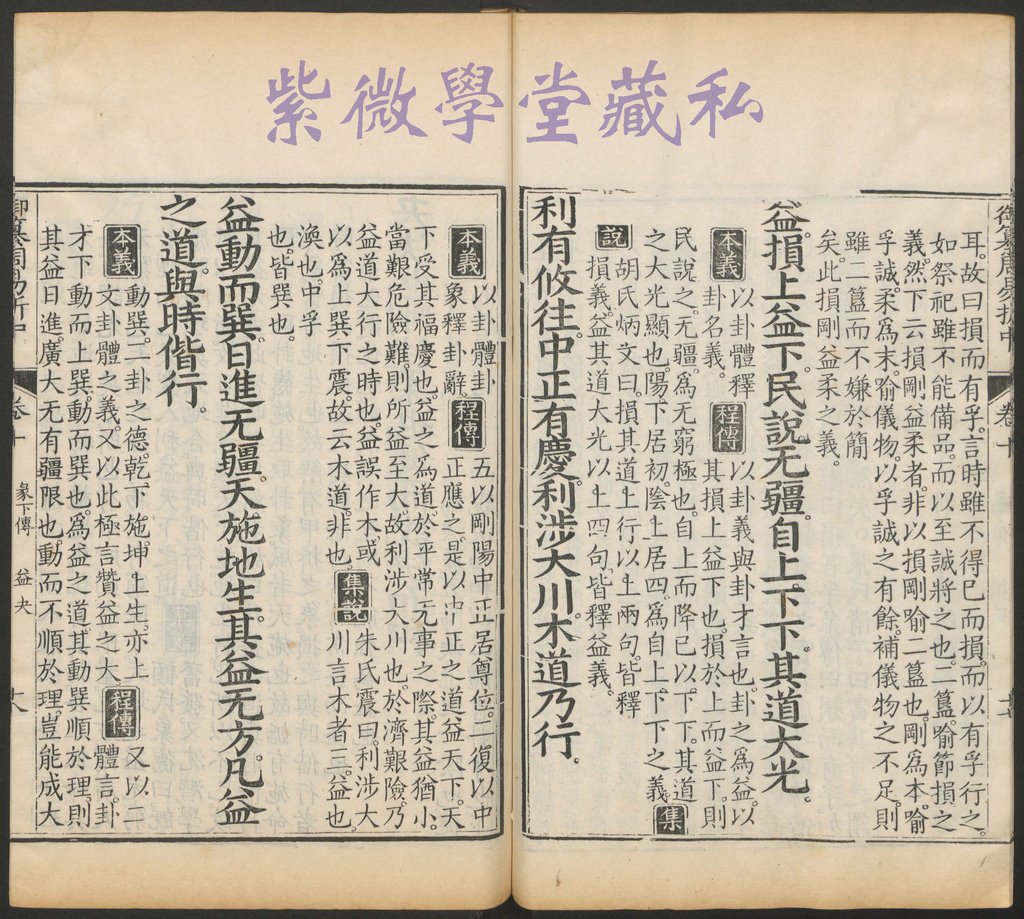 紫微學堂藏私
耳。故曰損而有孚。言時雖不得已而損。而以有孚行之。
如祭祀雖不能備品。而以至誠將之也。二簋。喻節損之
義。然下云損剛益柔者。非以損剛喻二簋也。剛為本。喻
孚誠。柔為末。喻儀物。以孚誠之有餘。補儀物之不足。則
雖二簋而不嫌於簡
矣。此損剛益柔之義。
益。損上益下。民說无疆。自上下下。其道大光。
本義
以卦體釋
卦名義。
程傳
以卦義與卦才言也。卦之為益。以
其損上益下也。損於上而益下。則
民說之。无疆。為无窮極也。自上而降已以下下。其道
之大光顯也。陽下居初。陰上居四。為自上下下之義。
集
說
胡氏炳文曰。損其道上行以上兩句。皆釋
損義。益其道大光以上四句。皆釋益義。
利有攸往。中正有慶。利涉大川。木道乃行。
本義
以卦體卦
象釋卦辭。
程傳
五以剛陽中正居尊位。二復以中
正應之。是以中正之道益天下。天
下受其福慶也。益之為道。於平常无事之際。其益猶小。
當艱危險難。則所益至大。故利涉大川也。於濟艱險。乃
益道大行之時也。益誤作木。或
以為上巽下震。故云木道。非也。
集說
朱氏震曰。利涉大
川言木者三。益也。
渙也。中孚
也。皆巽也。
益動而巽。日進无疆。天施地生。其益无方。凡益
之道。與時偕行。
本義
動巽。二卦之德。乾下施。坤上生。亦上
文卦體之義。又以此極言贊益之大。
程傳
又以二
體言。卦
才下動而上巽。動而巽也。為益之道。其動巽順於理。則
其益日進。廣大无有疆限也。動而不順於理。豈能成大
卷十
彖下傳
益
夬